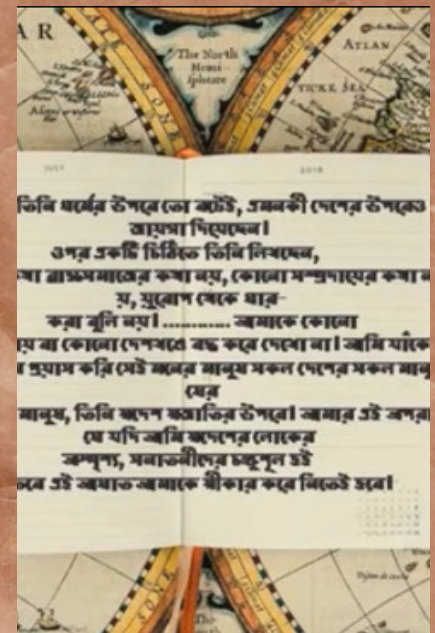 AR
The North
Hemi-
spheare
ATLAN
JULY
2018
তিনি ধর্মের উপরে তো বটেই, এমনকী দেশের উপরেও
জায়গা দিয়েছেন।
ওপর একটি চিঠিতে তিনি লিখছেন,
ব্রাহ্মসমাজের কথা নয়, কোনো সম্প্রদায়ের কথা
য়, য়ুরোপ থেকে ধার-
করা বুলি নয়। ............ আমাকে কোনো
বা কোনো দেশখণ্ডে বদ্ধ করে দেখো না। আমি যাঁকে
প্রয়াস করি সেই মনের মানুষ সকল দেশের সকল
ষের
মানুষ, তিনি স্বদেশ স্বজাতির উপরে। আমার এই
যে যদি আমি স্বদেশের লোকের
অস্পৃশ্য, সনাতনীদের চক্ষুশূল হই
এই আঘাত আমাকে স্বীকার করে নিতেই হবে।